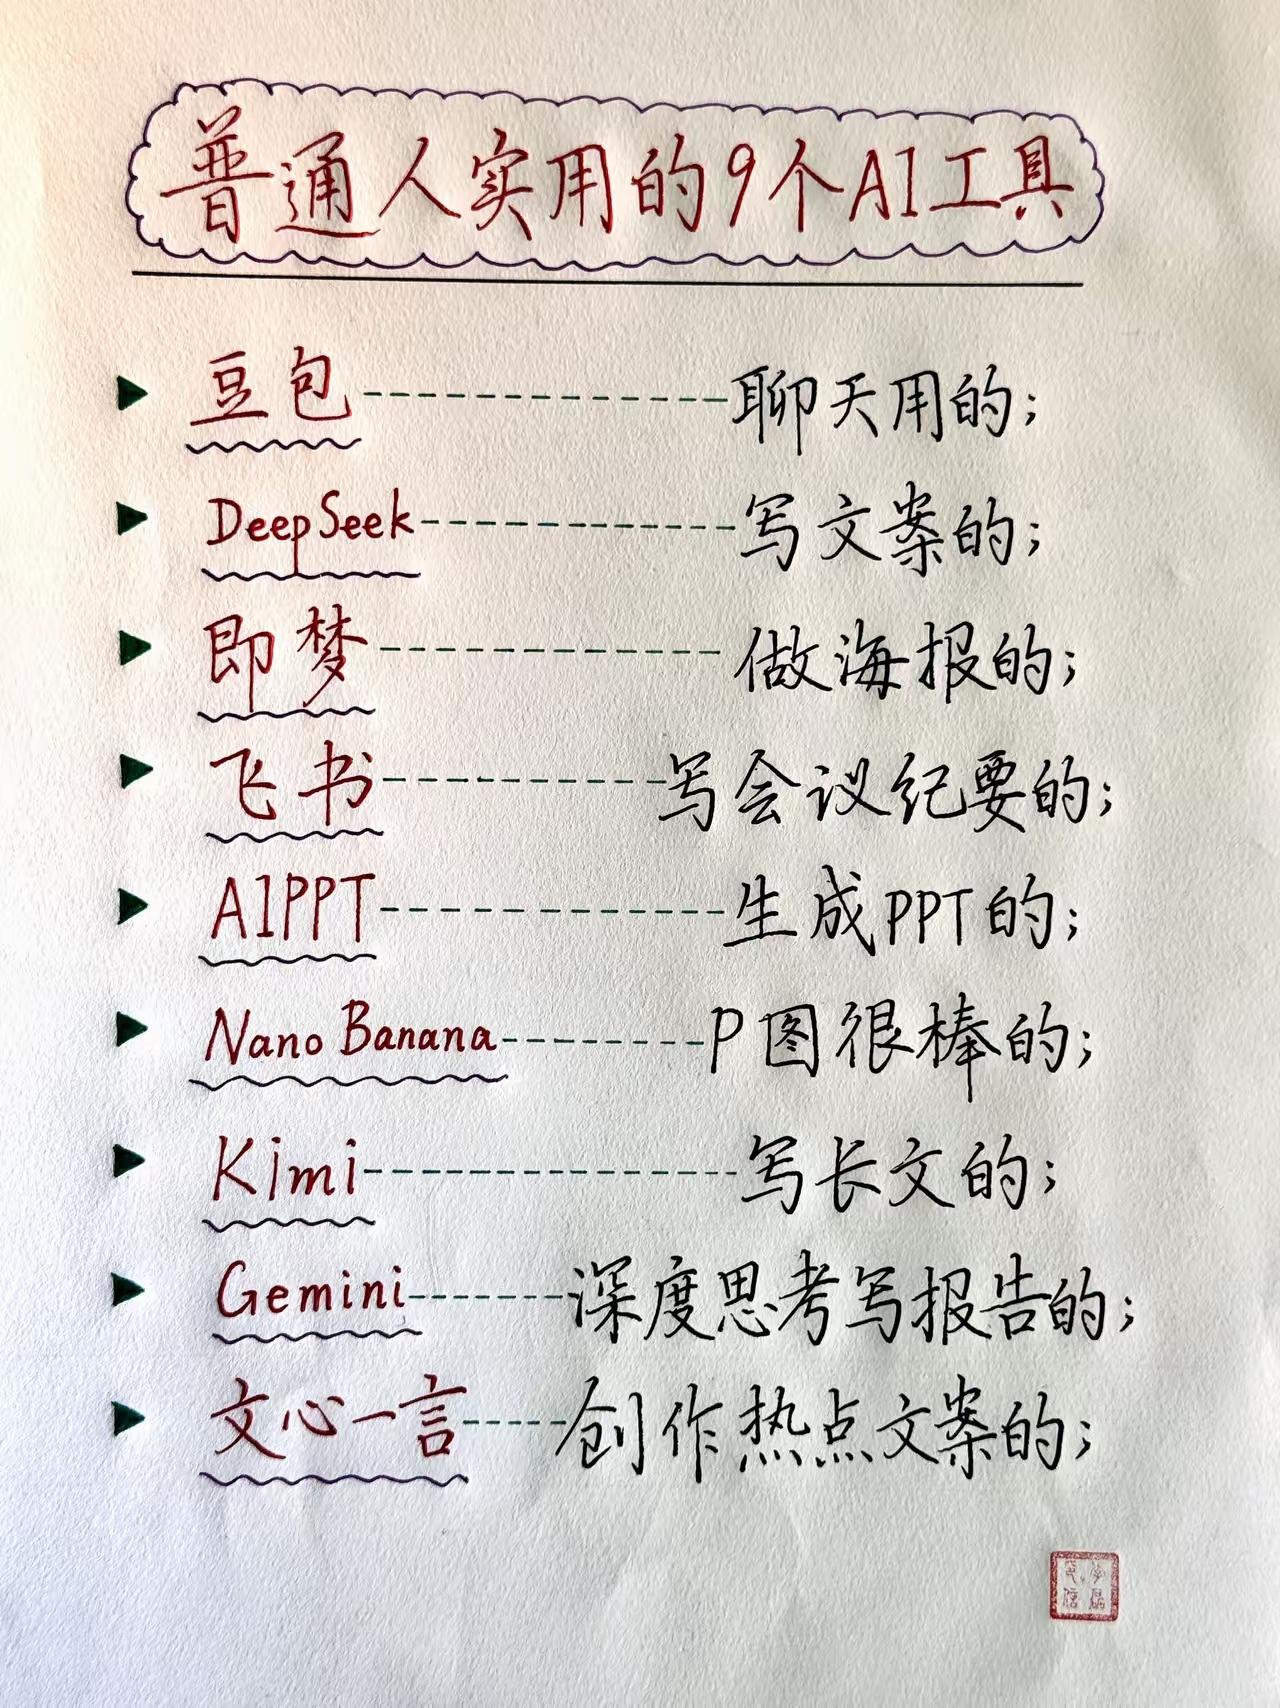 普通人实用的9个AI工具
豆包------------聊天用的;
DeepSeek------------写文案的;
即梦------------做海报的;
飞书------------写会议纪要的;
AIPPT------------生成PPT的;
Nano Banana--------P图很棒的;
Kimi------------写长文的;
Gemini------深度思考写报告的;
文心一言----创作热点文案的;